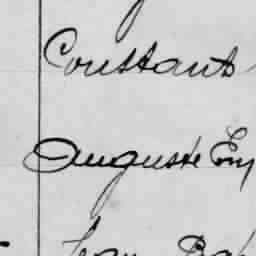 Constant
Auguste Em
Jean Bap